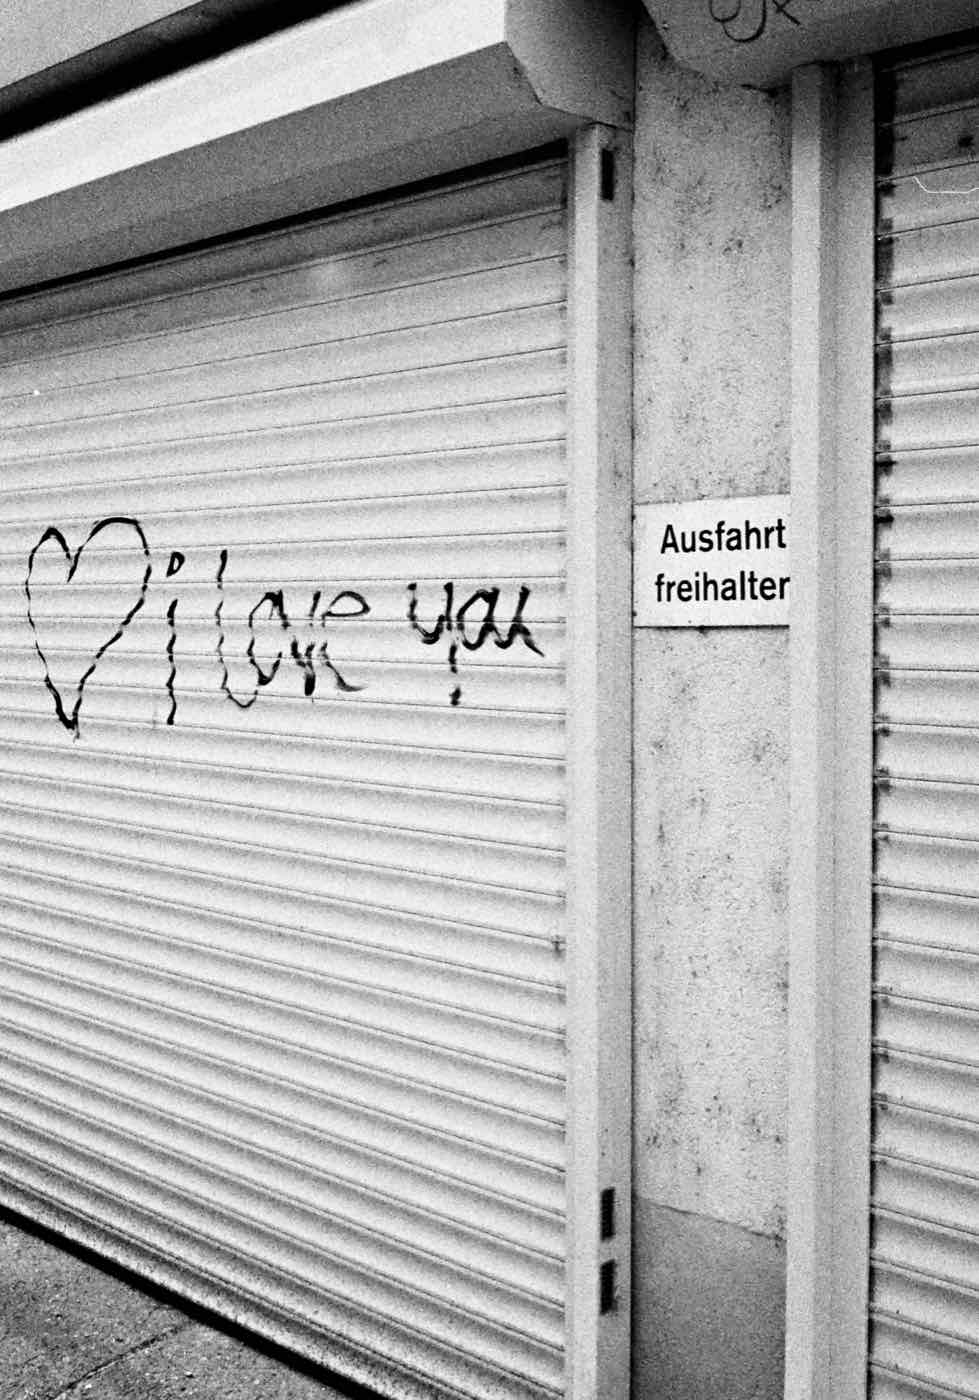 i love you
Ausfahrt
freihalten